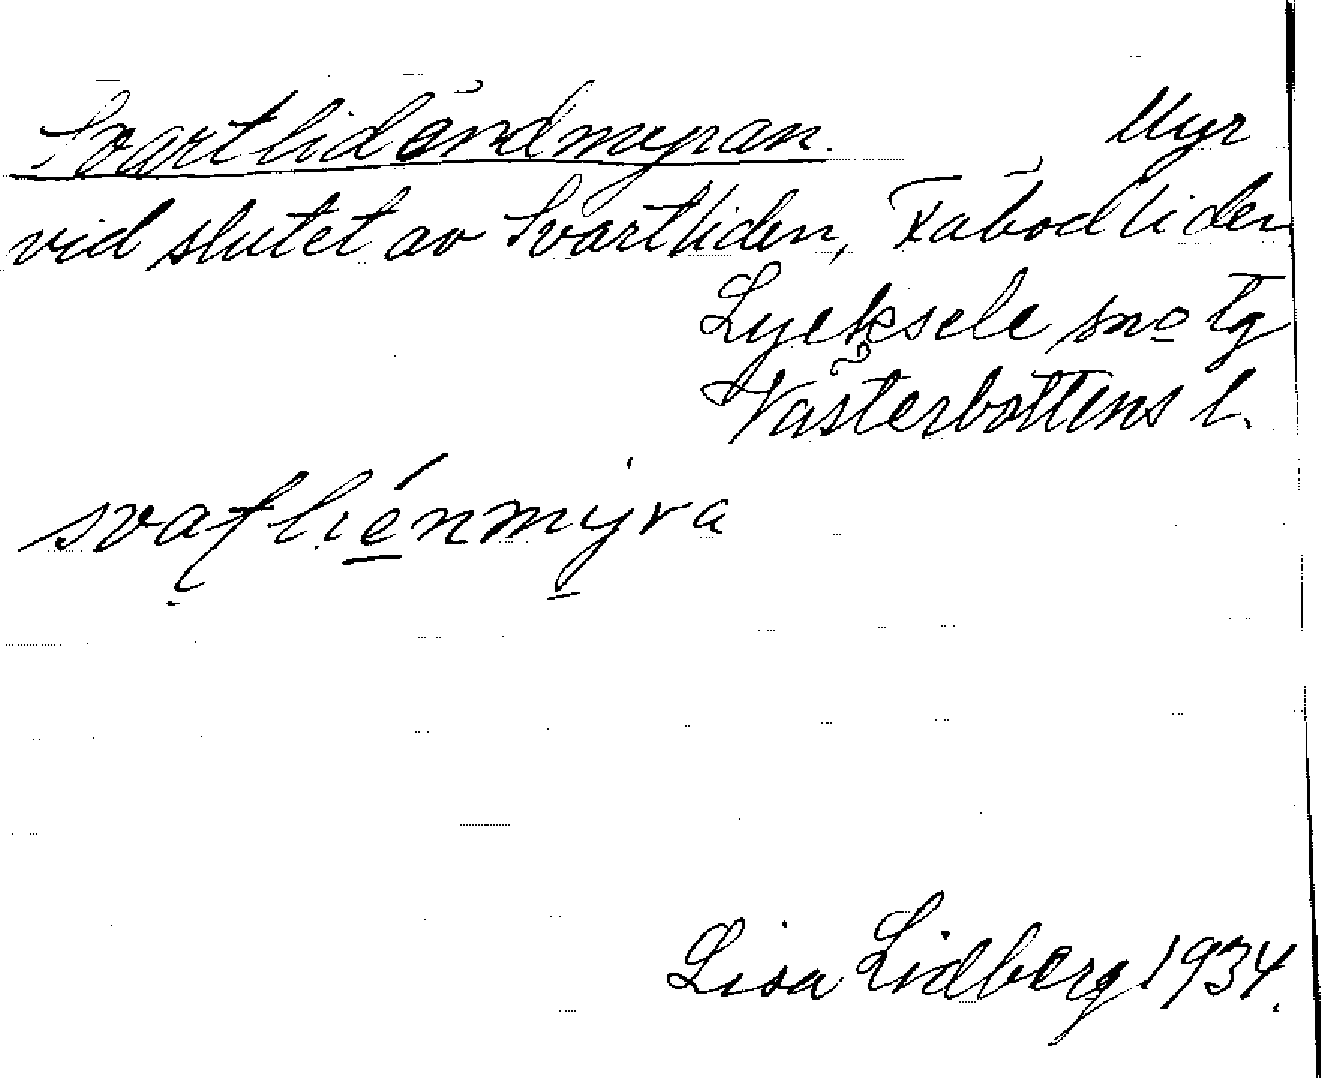 Svartlidändmyran. Myr
vid slutet av Svartliden, Fäbodliden
Lycksele sn o tg
Västerbottens l.
svaṭliénmýra
Lisa Lidberg 1934.